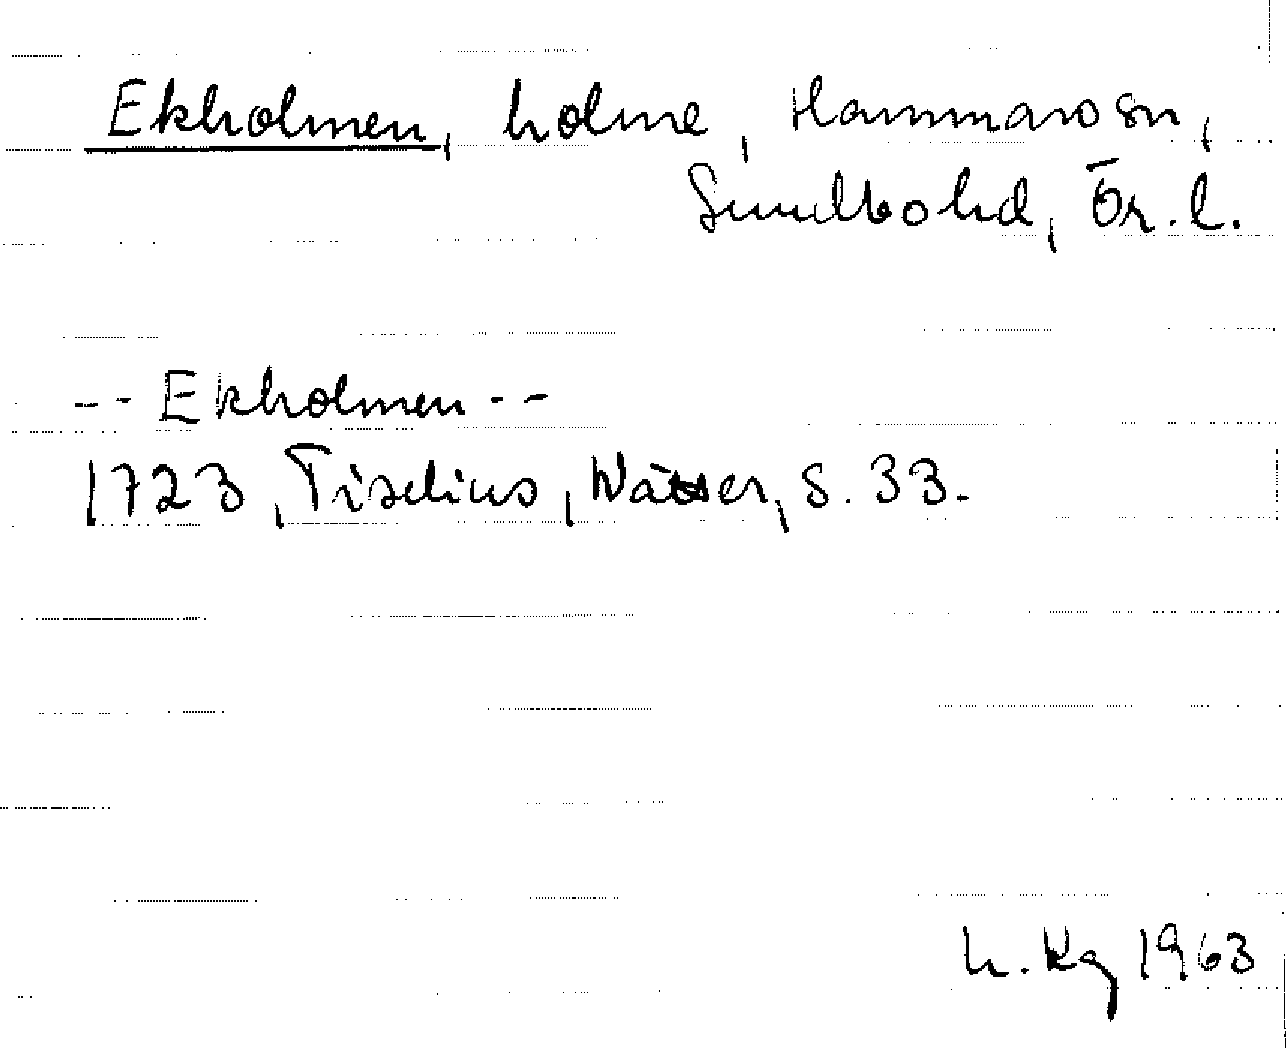 Ekholmen, holme, Hammarosn,
Sundbohd, Ör. l.
-- Ekholmen --
1723, Tiselius, Wätter, s. 33.
h. Kg 1963